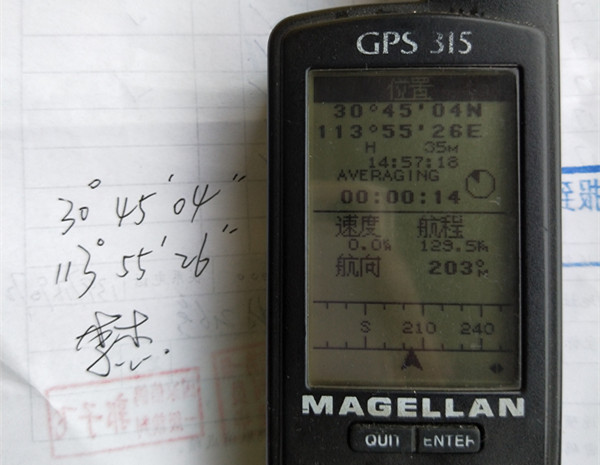 GPS 315
位置
30°45'04N
113°55'26E
H 35M
14:57:18
AVERAGING
00:00:14
速度 航程
0.0 129.5
航向 203°M
S 210 240
MAGELLAN
QUIT ENTER
30° 45' 04"
113° 55' 26"
报到